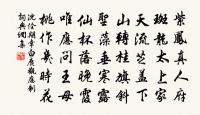 紫鳳真人府
斑龍太上家
天流芝蓋下
山轉桂旗斜
聖藻垂寒露
仙杯落晚霞
唯應問王母
桃作幾時花
沈佺期幸白鹿觀應制
詞典網集